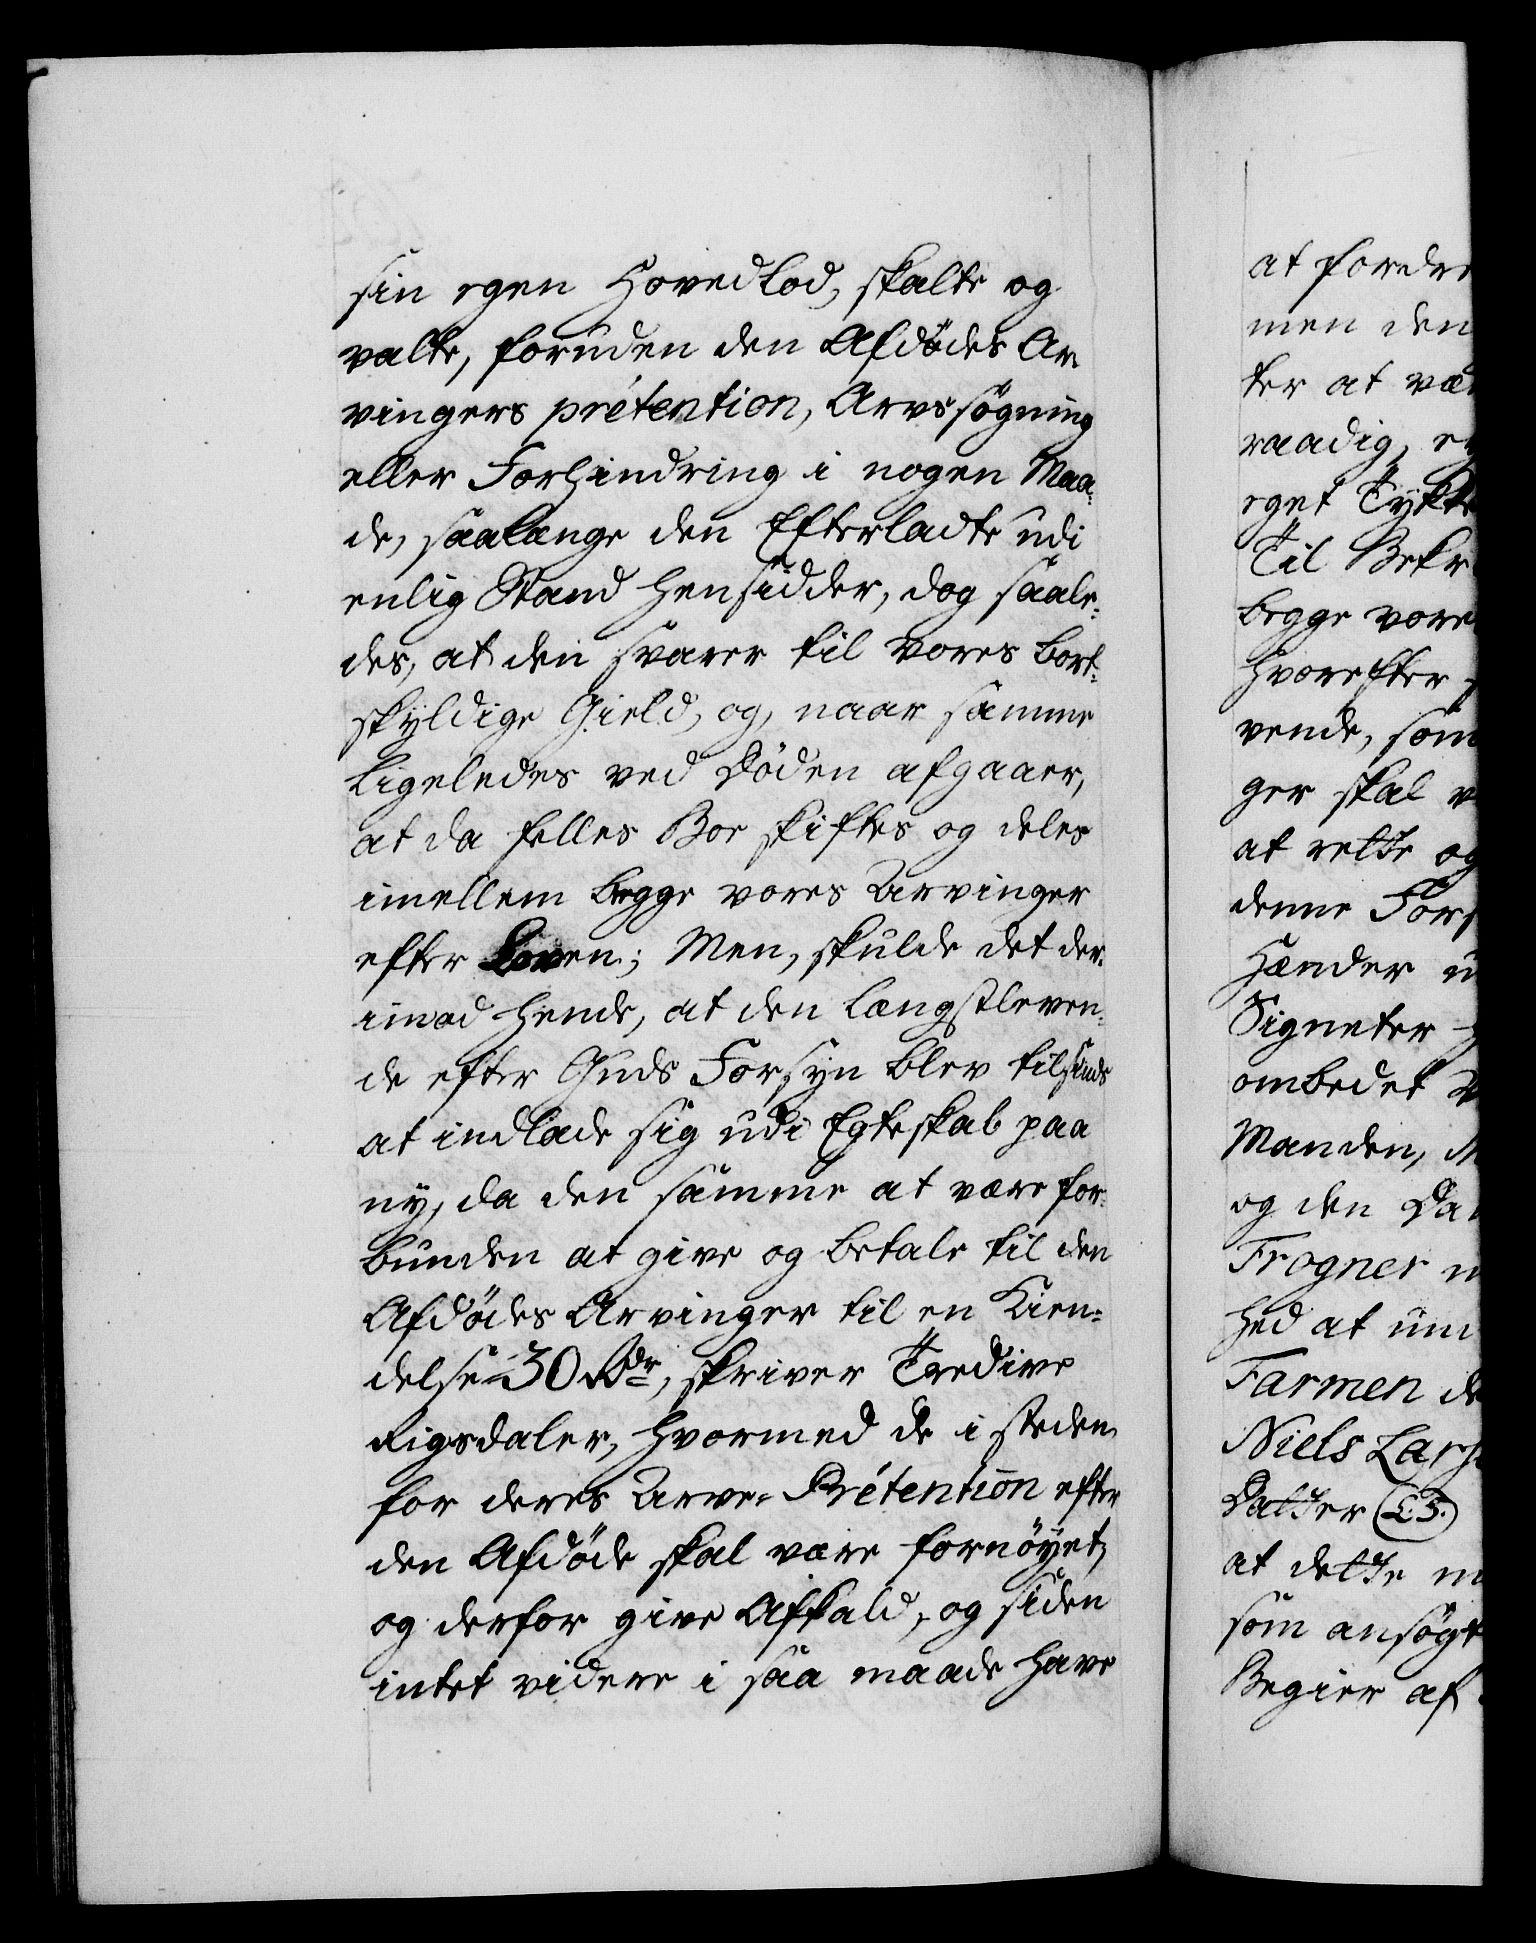 sin egen Hovedlod, skalte og
valte, foruden den Afdödes Ar-
vingers prétention, Arvs søgning
eller Forhindring i nogen Maa-
de, saalænge den Efterladte udi
enlig Stand hensidder, dog saale-
des, at den svarer til vores bort-
skyldige Gield, og, naar samme
ligeledes ved Døden afgaaer,
at da felles Boe skiftes og deles
imellem begge vores Arvinger
efter Loven; Men, skulde det der-
imod hende, at den længstleven-
de efter Guds Forsyn blev tilsinds
at indlade sig udi Egteskab paa
ny, da den samme at være for-
bunden at give og betale til den
Afdödes Arvinger til en Kien-
delse 30 Rdr, skriver Tredive
Rigsdaler, hvormed de i steden
for deres Arve-Prétention efter
den Afdöde skal være fornøyet,
og derfor give Afkald, og siden
intet videre i saa maade have
at fordre
men den
ter at væ
raadig, e
eget Tykke
Til Bekr
begge vore
hvorefter
vende, som
ger skal
at rette og
denne For
Hænder u
Signeter
ombedet
Manden,
og den Da
Frogner
hed at
Farmen de
Niels Lars
Datter (L.S.)
at dette m
som ansøgt
Begier af